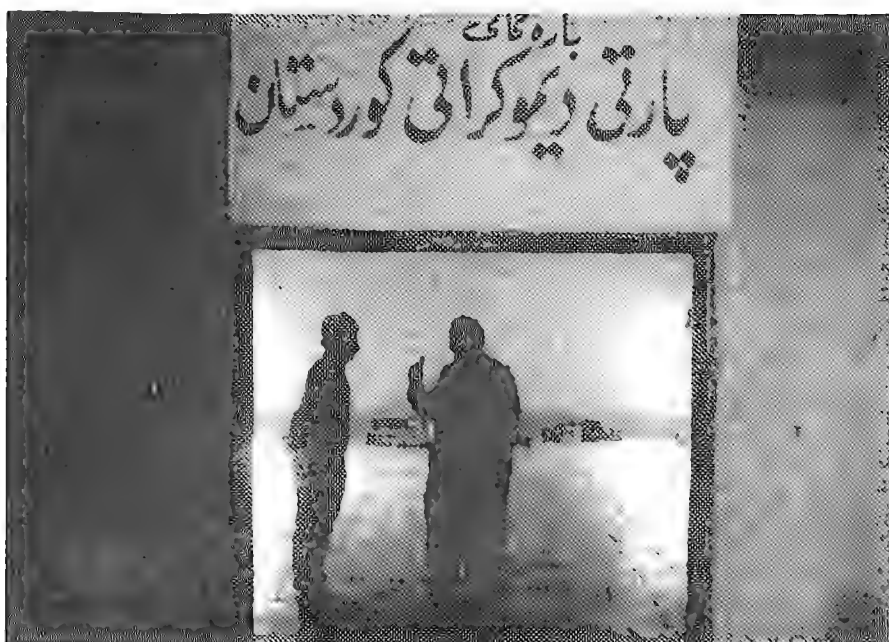 بارەگای
پارتی دیموکراتی کوردستان